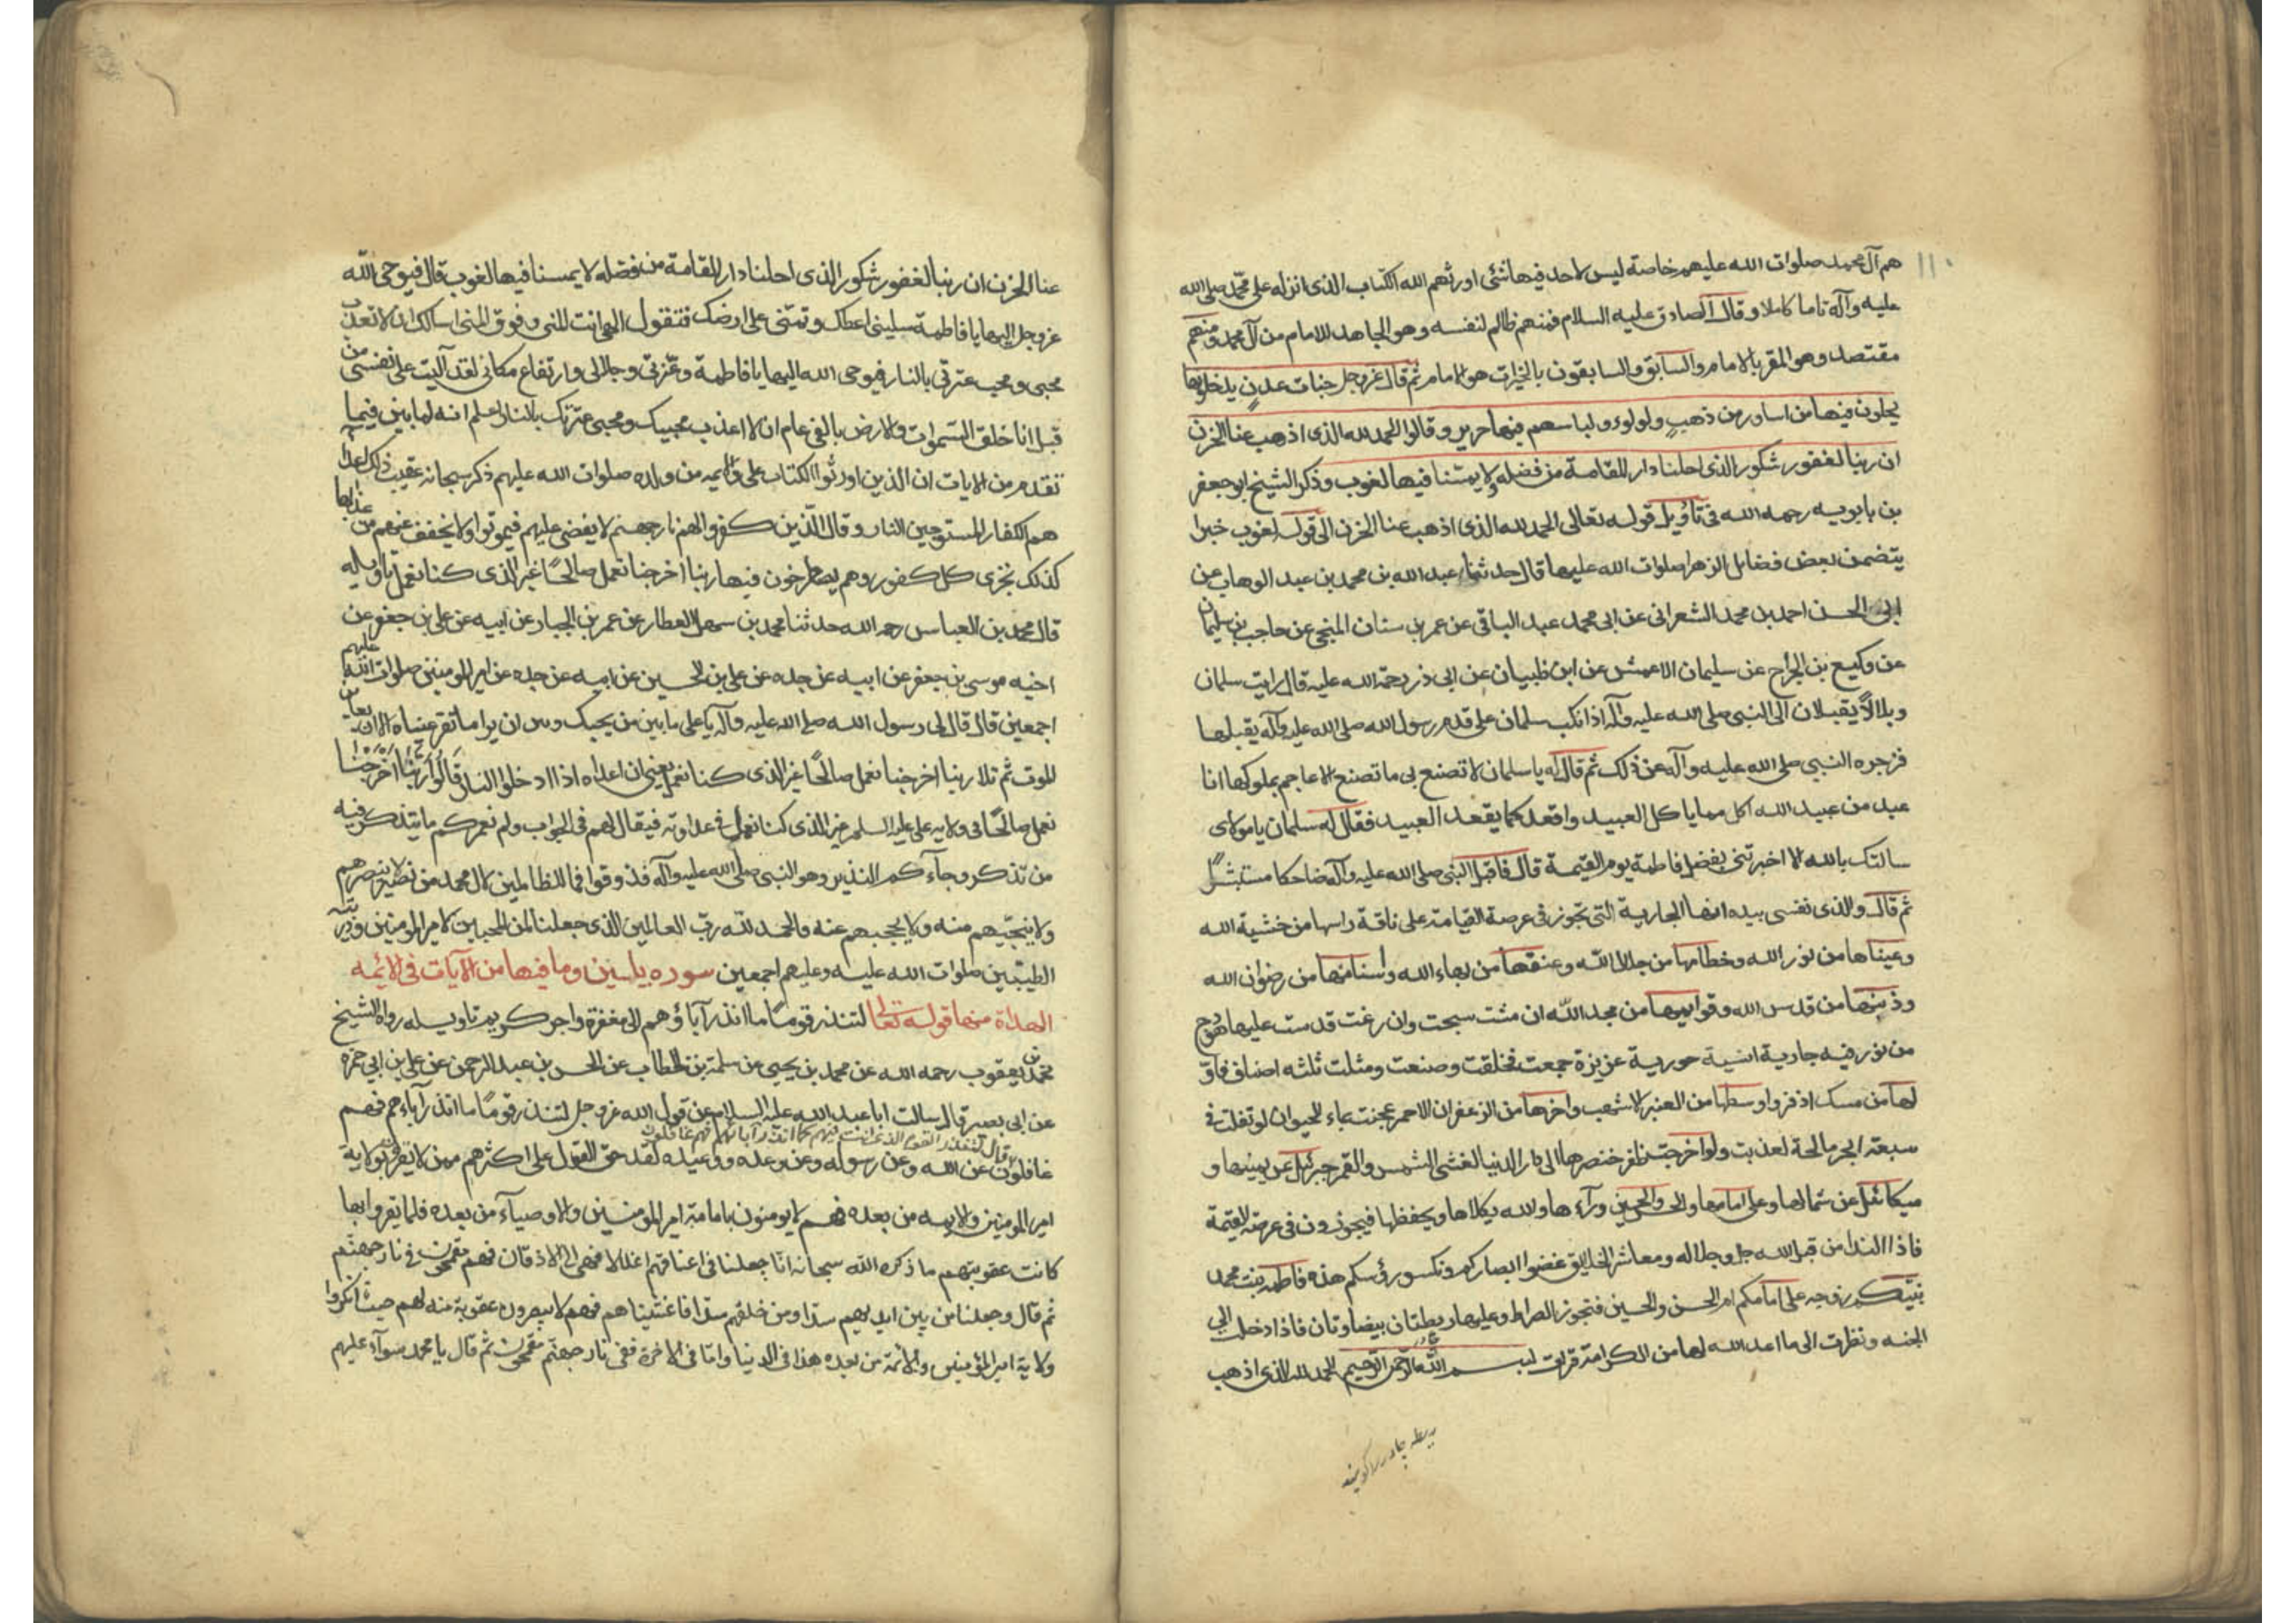 ١١٠
هم آل محمد صلوات الله عليهم خاصة ليس لاحد فيها شئ اورثهم الله الكتاب الذى انزله على محمد صلى الله
عليه وآله تاما كاملا وقال الصادق عليه السلام فمنهم ظالم لنفسه وهو الجاهد للامام من آل محمد ومنهم
مقتصد وهو المقر بالامام والسابق والسابقون بالخيرات هو الامام ثم قال عز وجل جنات عدن يدخلونها
يحلون فيها من اساور من ذهب ولولوء ولباسهم فيها حرير وقالوا الحمد لله الذى اذهب عنا الحزن
ان ربنا لغفور شكور الذى احلنا دار المقامة من فضله ولا يمسنا فيها لغوب وذكر الشيخ ابو جعفر
بن بابويه رحمه الله فى تأويل قوله تعالى الحمد لله الذى اذهب عنا الحزن الى قوله لغوب خبرا
يتضمن بعض فضايل الزهرا صلوات الله عليها قال حدثنا عبد الله بن محمد بن عبد الوهاب عن
ابى الحسن احمد بن محمد الشعرانى عن ابى محمد عبد الباقى عن عمر بن سنان المنبجى عن حاجب بن سليمان
عن وكيع بن الجراح عن سليمان الاعمش عن ابن ظبيان عن ابى ذر رحمة الله عليه قال رايت سلمان
وبلالاً يقبلان الى النبى صلى الله عليه وآله اذا نكب سلمان على قدم رسول الله صلى الله عليه وآله يقبلها
فزجره النبى صلى الله عليه وآله عن ذلك ثم قال له يا سلمان لا تصنع بى ما تصنع الاعاجم بملوكها انا
عبد من عبيد الله اكل مما ياكل العبيد واقعد كما يقعد العبيد فقال له سلمان يا مولاى
سالتك بالله الا اخبرتنى بفضل فاطمة يوم القيمة قال فاقبل النبى صلى الله عليه وآله ضاحكا مستبشرًا
ثم قال والذى نفسى بيده انها الجارية التى تجوز فى عرصة القيامة على ناقة راسها من خشية الله
وعيناها من نور الله وخطامها من جلال الله وعنقها من بهاء الله وسنامها من رضوان الله
وذنبها من قدس الله وقوايمها من مجد الله ان مشت سبحت وان رغت قدست عليها هودج
من نور فيه جارية انسية حورية عزيزة جمعت فخلقت وصنعت ومثلت ثلثه اصناف فاوّ
لها من مسك اذفر واوسطها من العنبر الاشهب واخرها من الزعفران الاحمر عجنت بماء الحيوان لو تفلت فى
سبعة ابحر مالحة لعذبت ولو اخرجت ظفر خنصرها الى دار الدنيا لغشى الشمس والقمر جبرئيل عن يمينها و
ميكائيل عن شمالها وعلى امامها والحسن والحسين ورآءها والله يكلاها ويحفظها فيجوزون فى عرصة القيمة
فاذا الندا من قبل الله جل وجلاله ومعاشر الخلايق غضوا ابصاركم ونكسوا رؤسكم هذه فاطمة بنت محمد
نبيّكم زوجه على امامكم ام الحسن والحسين فتجوز الصراط وعليها ريطتان بيضاوتان فاذا دخلت الى
الجنه ونظرت الى ما اعد الله لها من الكرامة قرات بسم الله الرحمن الرحيم الحمد لله الذى اذهب
ريطه چادر را كويند
عنا الحزن ان ربنا لغفور شكور الذى احلنا دار المقامة من فضله لا يمسنا فيها لغوب قال فيوحى الله
عز وجل اليها يا فاطمة سلينى اعطك وتمنّى على ارضك فتقول الهى انت المنى وفوق المنى اسالك ان لا تعذب
محبى ومحب عترتى بالنار فيوحى الله اليها يا فاطمة وعزتى وجلالى وارتفاع مكانى لقد آليت على نفسى من
قبل انا خلق السموات والارض بالفى عام ان لا اعذب محبيك ومحبى عترتك بالنار اعلم انه لما بين فيما
تقدم من الايات ان الذين اورثوا الكتاب على والايمه من ولده صلوات الله عليهم ذكر سبحانه عقيب ذلك اعداء
هم الكفار المستوجبين النار وقال الذين كفروا لهم نار جهنم لا يقضى عليهم فيموتوا ولا يخفف عنهم من عذابها
كذلك نجزى كل كفور وهم يصطرخون فيها ربنا اخرجنا نعمل صالحًا غير الذى كنا نعمل تاويله
قال محمد بن العباس رحمه الله حدثنا محمد بن سهل العطار عن عمر بن الجبار عن ابيه عن على بن جعفر عن
اخيه موسى بن جعفر عن ابيه عن جده عن على بن الحسين عن ابيه عن جده عن امير المومنين صلوات الله عليهم
اجمعين قال قال لى رسول الله صلى الله عليه وآله يا على ما بين من يحبك وبين ان يرا ما تقر عيناه الا ان يعاين
الموت ثم تلا ربنا اخرجنا نعمل صالحًا غير الذى كنا نعمل يعنى ان اعداه اذا ادخلوا النار قالوا ربنا اخرجنا
نعمل صالحًا فى ولايه على عليه السلم غير الذى كنا نعمل فى عداوته فيقال لهم فى الجواب ولم نعمركم ما يتذكر فيه
من تذكر وجآءكم النذير وهو النبى صلى الله عليه وآله فذوقوا فما للظالمين لال محمد من نصير ينصرهم
ولا ينجيهم منه ولا يحجبهم عنه والحمد لله رب العالمين الذى جعلنا من المحبين لامير المومنين وذريته
الطيبين صلوات الله عليه وعليهم اجمعين سوره ياسين وما فيها من الآيات فى الائمه
الهداة منها قوله تعالى لتنذر قومًا ما انذر آباؤهم الى مغفرة واجر كريم تاويله رواه الشيخ
محمد بن يعقوب رحمه الله عن محمد بن يحيى عن سلمة بن الخطاب عن الحسن بن عبد الرحمن عن على بن ابى حمزه
عن ابى بصير قال سالت ابا عبد الله عليه السلام عن قول الله عز وجل لتنذر قومًا ما انذر آباءهم فهم
قال لتنذر القوم الذى انت فيهم كما انذر آبائهم فهم غافلون
غافلون عن الله وعن رسوله وعن وعده ووعيده لقد حق القول على اكثرهم ممن لا يقرون بولاية
امير المومنين والايمه من بعده فهم لا يومنون بامامة امير المومنين والاوصيآء من بعده فلما يقروا بها
كانت عقوبتهم ما ذكره الله سبحانه انّا جعلنا فى اعناقهم اغلالا فهى الى الاذقان فهم مقمحون فى نار جهنم
ثم قال وجعلنا من بين ايديهم سدا ومن خلفهم سدا فاغشيناهم فهم لا يبصرون عقوبة منه لهم حيث انكروا
ولاية امير المؤمنين والائمة من بعده هذا فى الدنيا وامّا فى الاخرة ففى نار جهنم مقمحون ثم قال يا محمد سوآء عليهم